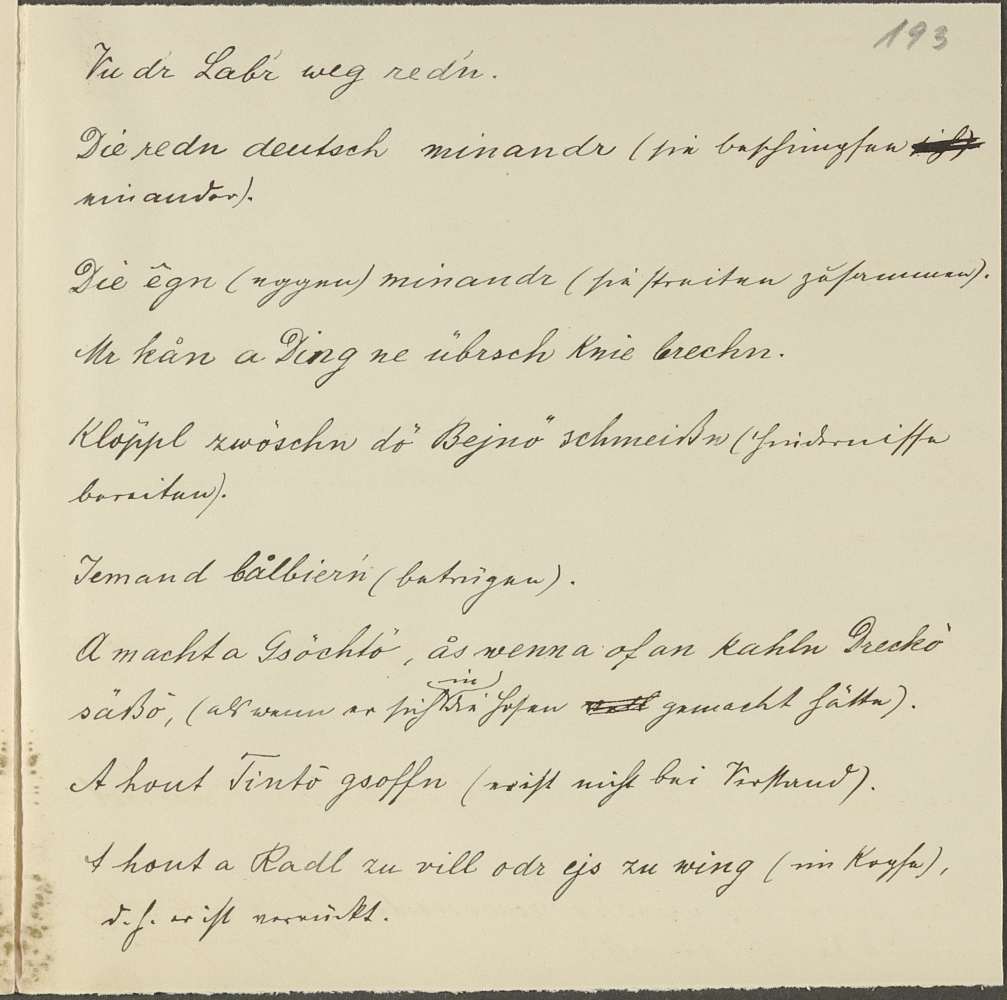 193
Vu dr Labr weg redn.
Die redn deutsch minandr (sie beschimpfen sich
einander).
Die êgn (eggen) minandr (sie streiten zusammen).
Mr kån a Ding ne übrsch Knie brechn.
Klöppl zwöschn dö Bejnö schmeißn (Hindernisse
bereiten).
Jemand bålbiern (betrügen).
A macht a Gsöchtö, ås wenn a of an kahln Dreckö
säßö, (als wenn er sich in die Hosen gemacht hätte).
A hout Tintö gsoffn (er ist nicht bei Verstand).
A hout a Radl zu vill odr ejs zu wing (im Kopfe),
d. h. er ist verrückt.